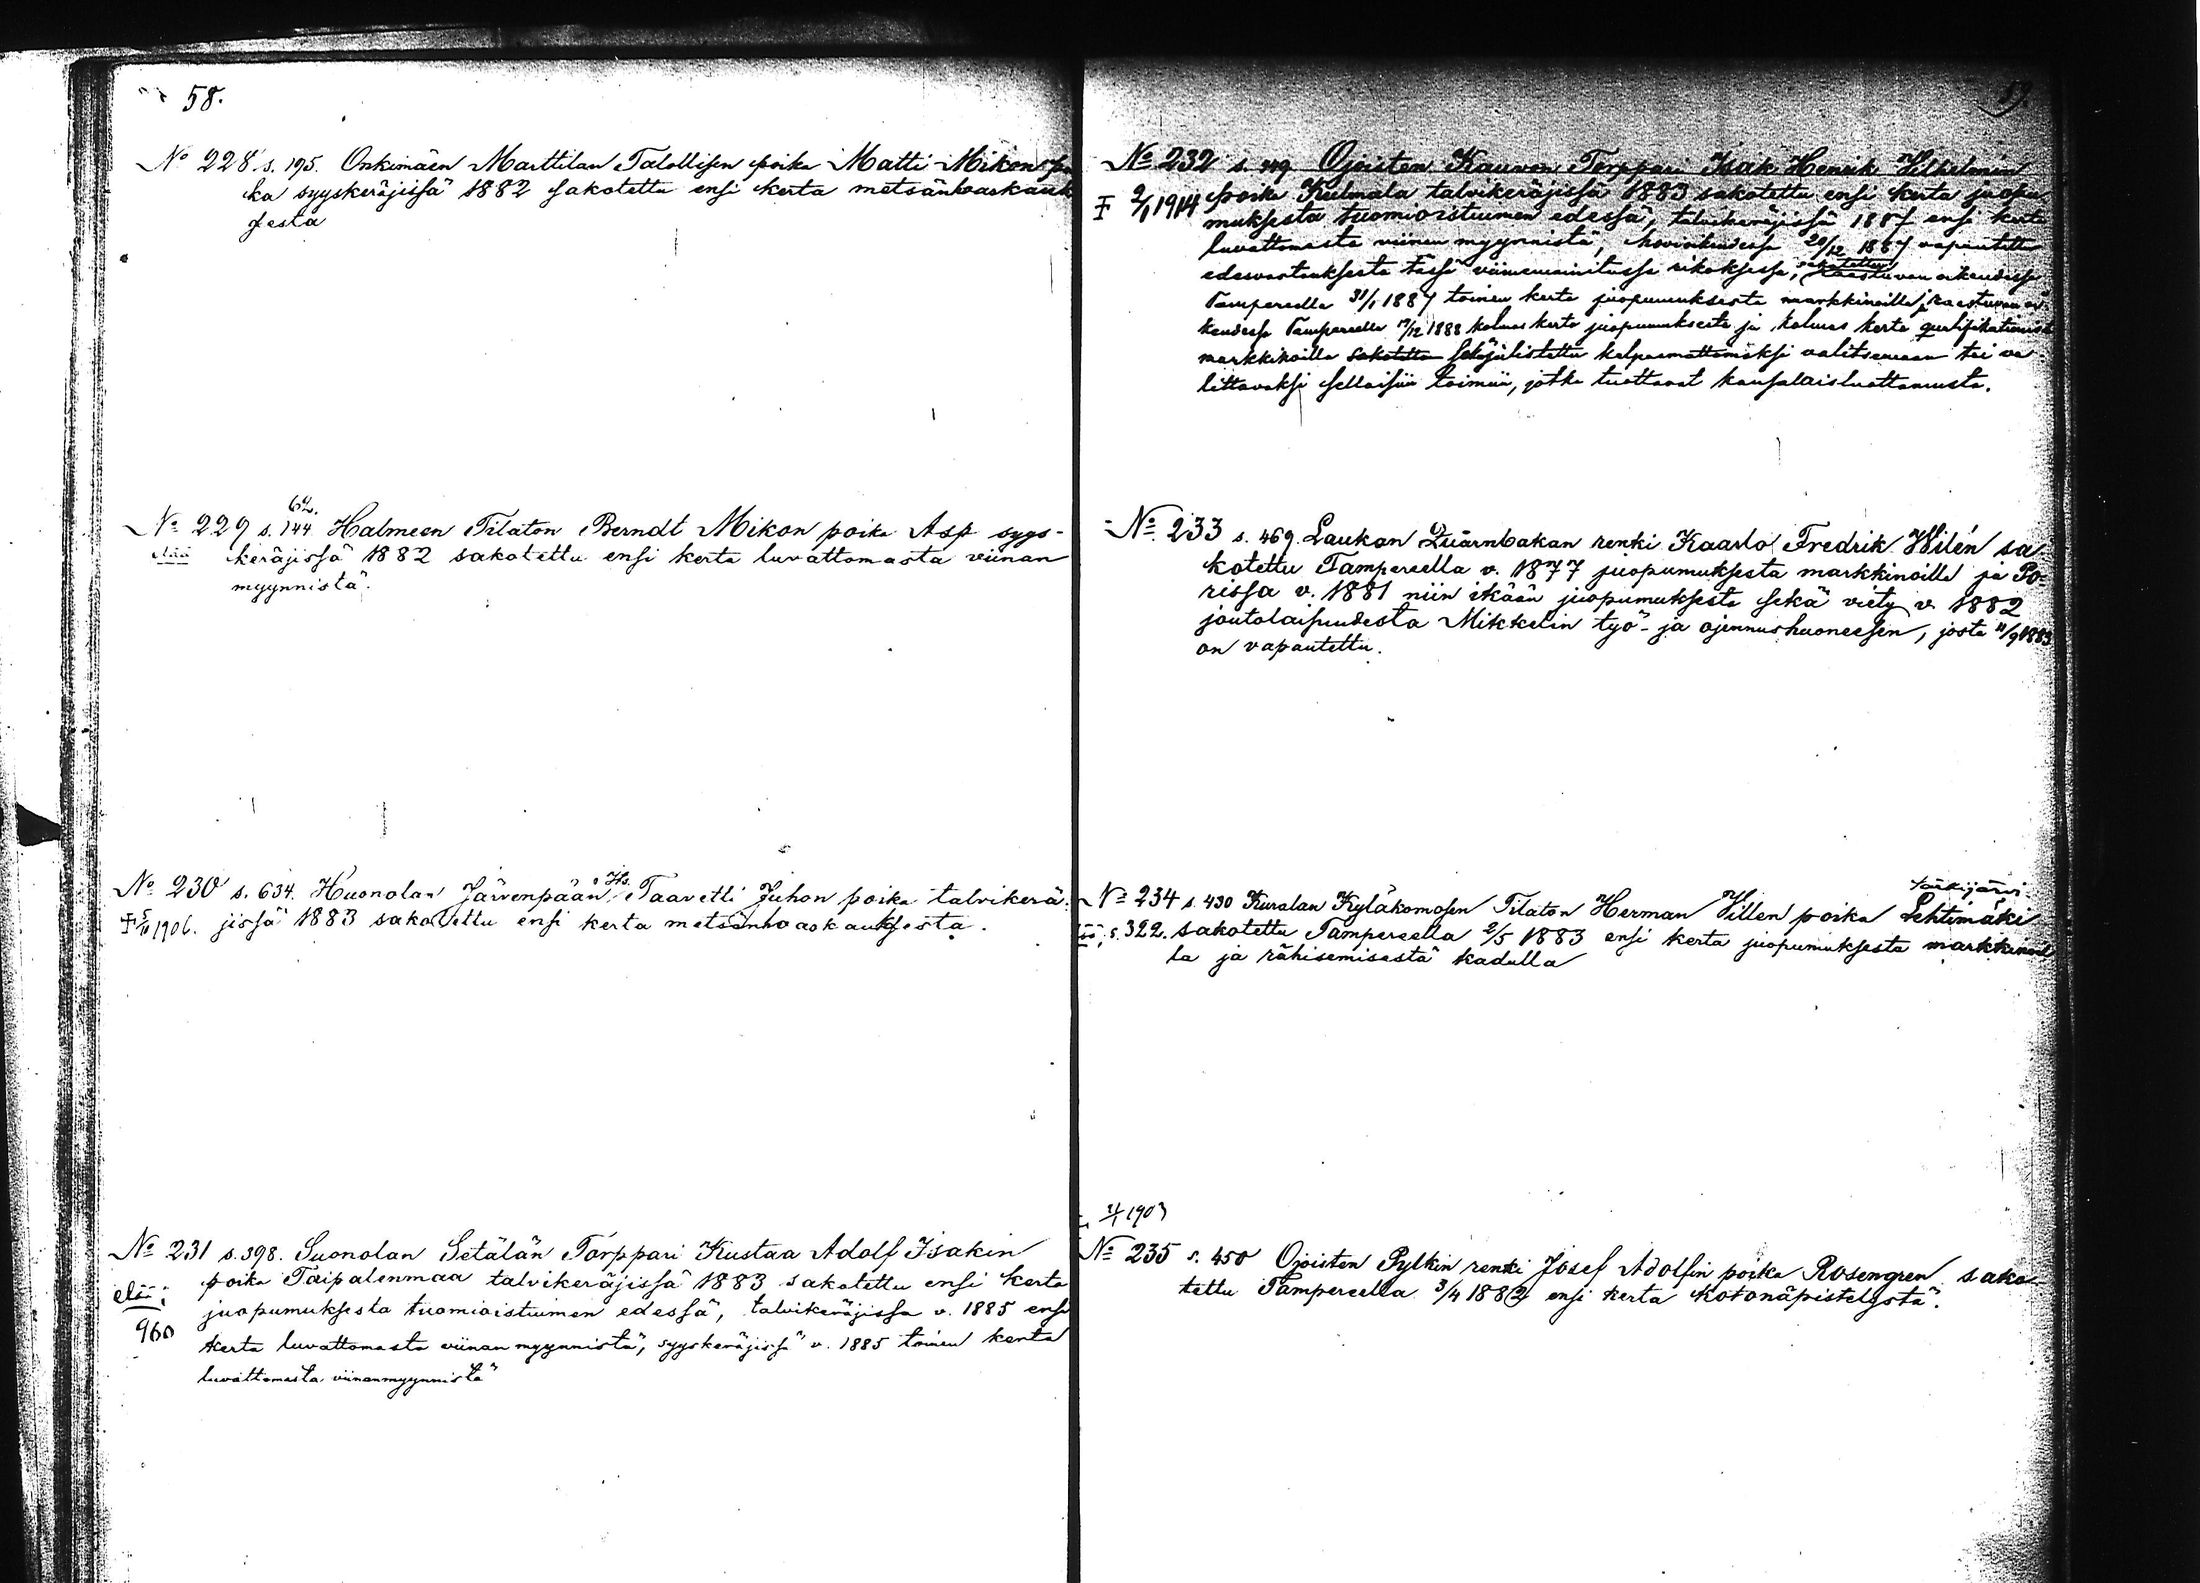 58.
No 228 s. 195. Onkimäen Marttilan Talollisen poika Matti Mikon poi
ka syyskeräjissä 1882 sakotettu ensi kerta metsänhaaskauk
sesta
62.
No 229 s. 144 Halmeen Tilaton Berndt Mikon poika Asp syys-
elää keräjissä 1882 sakotettu ensi kerta luvattomasta viinan
myynnistä.
Hs.
No 230 s. 634. Huonolan Järvenpään Taavetti Juhon poika talvikerä
1906. jissä 1883 sakotettu ensi kerta metsänhaaskauksesta.
No 231 s. 398. Suonolan Setälän Torppari Kustaa Adolf Isakin
poika Taipalenmaa talvikeräjissä 1883 sakotettu ensi kerta
elää;
juopumuksesta tuomioistuimen edessä, talvikeräjissä v. 1885 ensi
960
kerta luvattomasta viinan myynnistä, syyskeräjissä v. 1885 toinen kerta
luvattomasta viinanmyynnistä
59
No 232 s. 249 Ojoisten Kauvon Torppari Isak Henrik Vilhelmin
2/1 1914 poika Kulmala talvikeräjissä 1883 sakotettu ensi kerta juopu
muksesta tuomioistuimen edessä, talvikeräjissä 1887 ensi kerta
luvattomasta viinan myynnistä, hovioikeudessa 20/12 1887 vapautettu
edesvastauksesta tässä viimemainitussa rikoksessa, sakotettu raastuvan oikeudessa
Tampereella 31/1 1887 toinen kerta juopumuksesta markkinoilla ja raastuvan oi
keudessa Tampereella 17/12 1888 kolmas kerta juopumuksesta ja kolmas kerta
markkinoilla sakotettu julistettu kelpaamattomaksi valitsemaan tai va
littavaksi sellaisiin toimiin, jotka tuottavat kansalaisluottamusta.
No 233 s. 469. Laukon Quarnbakan renki Kaarlo Fredrik Wilén sa
kotettu Tampereella v. 1877 juopumuksesta markkinoilla ja Po-
rissa v. 1881 niin ikään juopumuksesta sekä viety v. 1882
joutolaisuudesta Mikkelin työ- ja ojennushuoneesen, josta 11/9 1883
on vapautettu.
Särkijärvi
No 234 s. 430 Kuralan Kyläkomosen Tilaton Herman Villen poika Lehtimäki
s. 322. sakotettu Tampereella 2/5 1883 ensi kerta juopumuksesta markkinoil
la ja rähisemisestä kadulla
1903
No 235 s. 450 Ojoisten Pylkin renki Josef Adolfin poika Rosengren sako-
tettu Tampereella 3/4 1882 ensi kerta kotonäpistelystä.